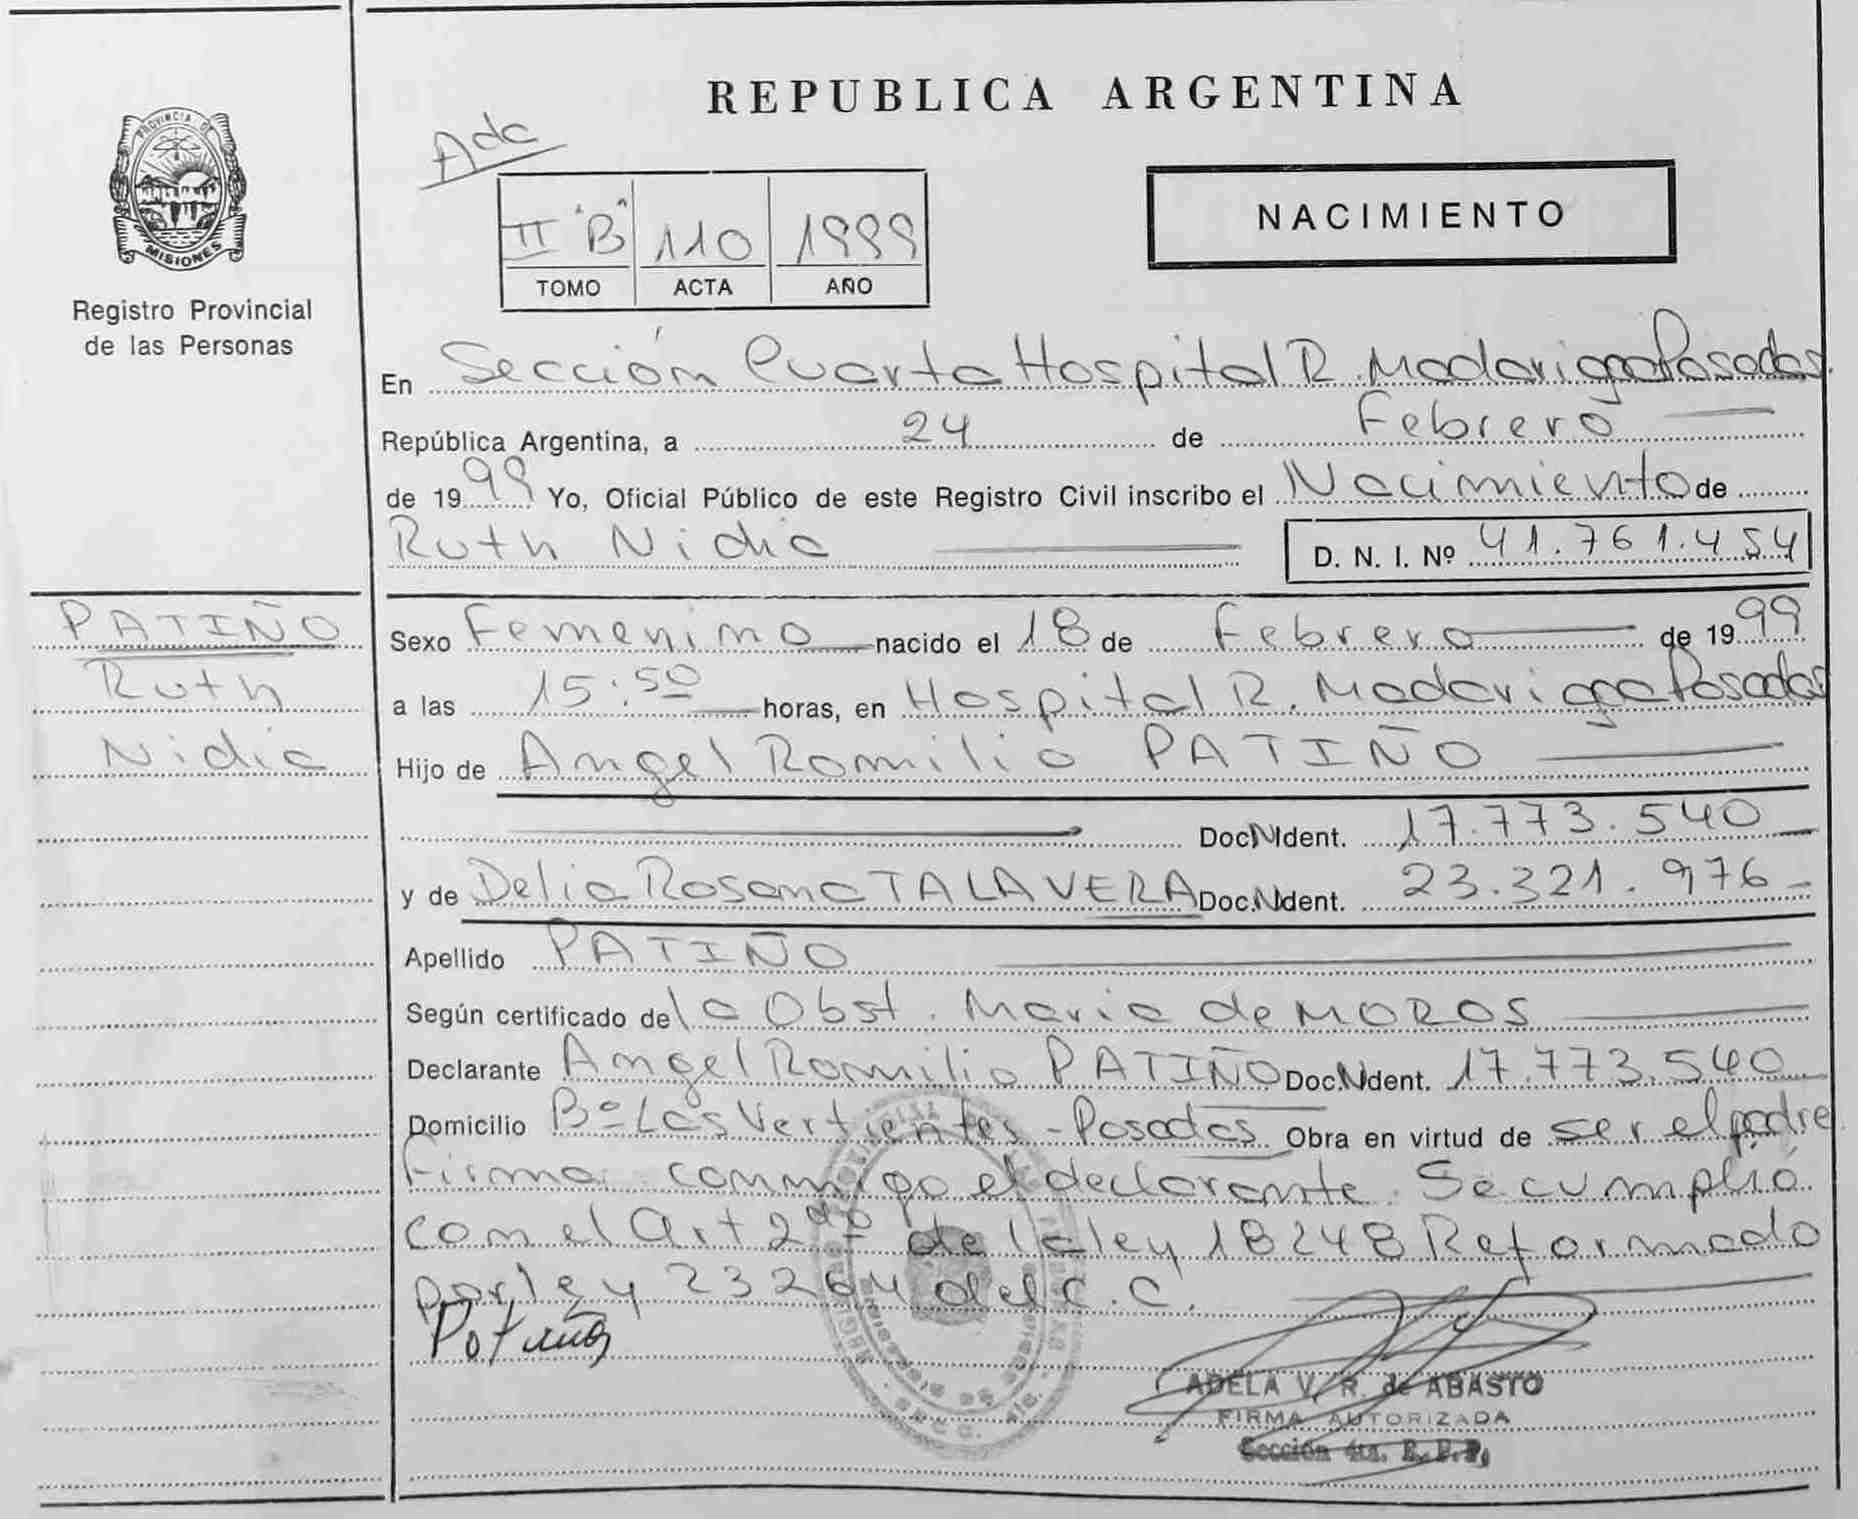 PROVINCIA DE
MISIONES
Registro Provincial
de las Personas
PATIÑO
Ruth
Nidia
REPUBLICA ARGENTINA
Adc
NACIMIENTO
II "B" 110 1999
TOMO ACTA AÑO
En Sección Cuarta Hospital R. Madariaga Posadas.
República Argentina, a 24 de Febrero
de 1999 Yo, Oficial Público de este Registro Civil inscribo el Nacimiento de
Ruth Nidia D. N. I. Nº 41.761.454
Sexo Femenino nacido el 18 de Febrero de 1999
a las 15:50 horas, en Hospital R. Madariaga Posadas
Hijo de Angel Romilio PATIÑO
Doc. Ident. 17.773.540
y de Delia Rosana TALAVERA Doc. Ident. 23.321.976
Apellido PATIÑO
Según certificado de la Obst. Maria de MOROS
Declarante Angel Romilio PATIÑO Doc. Ident. 17.773.540
Domicilio Bº Las Vertientes - Posadas Obra en virtud de ser el padre
Firma conmigo el declarante. Se cumplió
con el Art 2do de la ley 18248 Reformado
por ley 23264 del C.C.
ADELA V. R. de ABASTO
FIRMA AUTORIZADA
Sección 4ta. R.P.P.